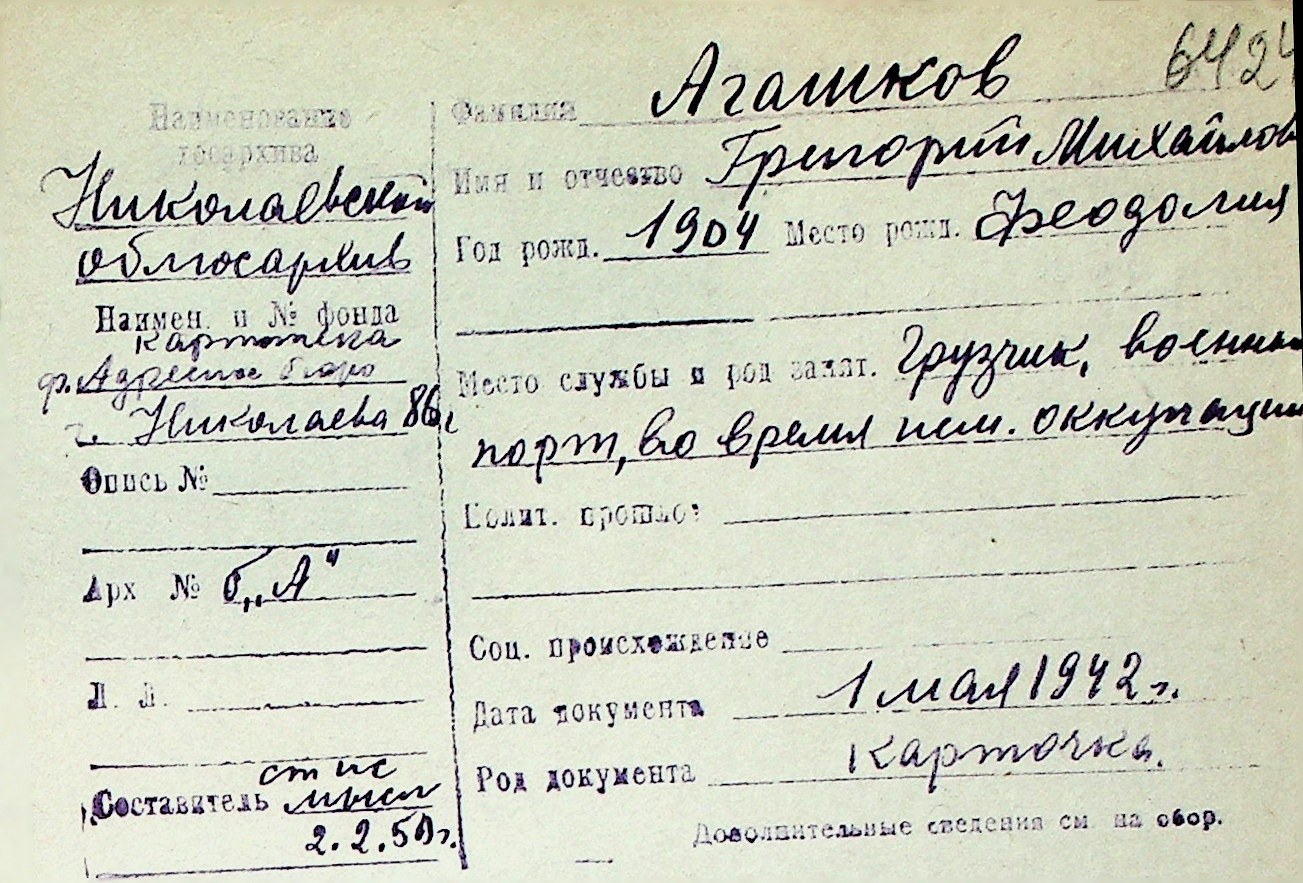 6424
Наименование
госархива
Николаевский
облгосархив
Наимен. и № фонда
картотека
ф. Адресное бюро
г. Николаева 86г
Опись №
Арх № б„А"
Л. Л.
Составитель
2.2.50г.
Фамилия Агашков
Имя и отчество Григорий Михайлов
Год рожд. 1904 Место рожд. Феодосия
Место службы и род занят. Грузчик, военный
порт, во время нем. оккупации
Полит. прошлое
Соц. происхождение
Дата документа 1 мая 1942 г.
Род документа карточка.
Дополнительные сведения см. на обор.